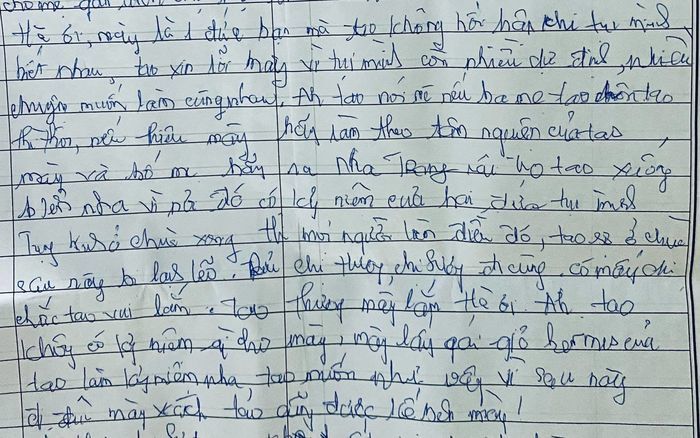 cho mẹ
Hề ơi, mày là 1 đứa bạn mà tao không hối hận khi tụi mình
biết nhau, tao xin lỗi mày vì tụi mình còn nhiều dự định, nhiều
chuyện muốn làm cùng nhau. Ah tao nói nè nếu ba mẹ tao chôn tao
thì thôi, nếu thiêu mày hãy làm theo tâm nguyện của tao,
mày và bố mẹ hãy ra nha Trang rãi tro tao xuống
biển nha vì nơi đó có kỷ niệm của hai đứa tụi mình
Tụng kinh ở chùa xong thì mọi người lên đền đó, tao sẽ ở chùa
sau này bị lạnh lẽo. chị thuỷ, chị cũng có mấy chị
chắc tao vui lắm. tao thương mày lắm Hề ơi. Ah tao
không có kỷ niệm gì cho mày, mày lấy cái giỏ hermes của
tao làm kỷ niệm nha, tao muốn như vậy vì sau này
đi đâu mày xách tao cũng được kế bên mày!